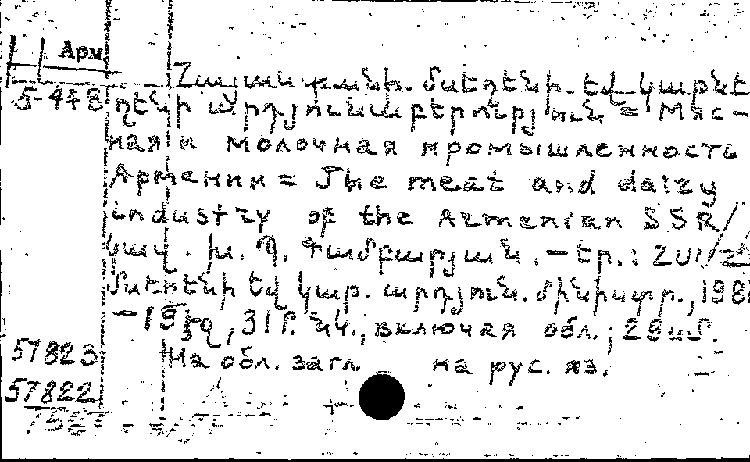 Арм
5-448
Հայաստանի մսեղենի եվ կաթնե
ղենի արդյունաբերություն = Мяс-
ная и молочная промышленность
Армении = The meat and dairy
industry of the Armenian SSR/
կազ. խ. Պ. Համբարյան. – Եր.:
մսեղենի եվ կաթ. արդյուն. մինիստր., 198
, 31 է. նկ., включая обл.; 29 սմ.
57823 На обл. загл. на рус. яз.
57822